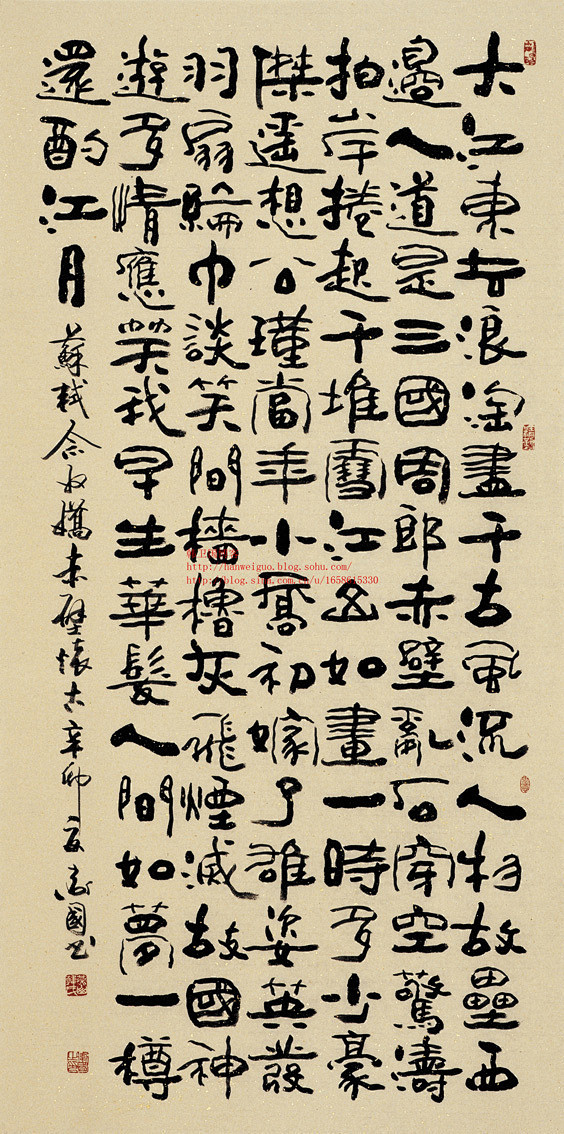 大江東去浪淘盡千古風流人物故壘西
邊人道是三國周郎赤壁亂石穿空驚濤
拍岸捲起千堆雪江山如畫一時多少豪
傑遥想公瑾當年小喬初嫁了雄姿英發
羽扇綸巾談笑間檣櫓灰飛煙滅故國神
遊多情應笑我早生華髮人間如夢一樽
還酌江月
蘇軾念奴嬌赤壁懷古辛卯夏衛國书
http://hanweiguo.blog.sohu.com/
http://blog.sina.com.cn/u/1658615330